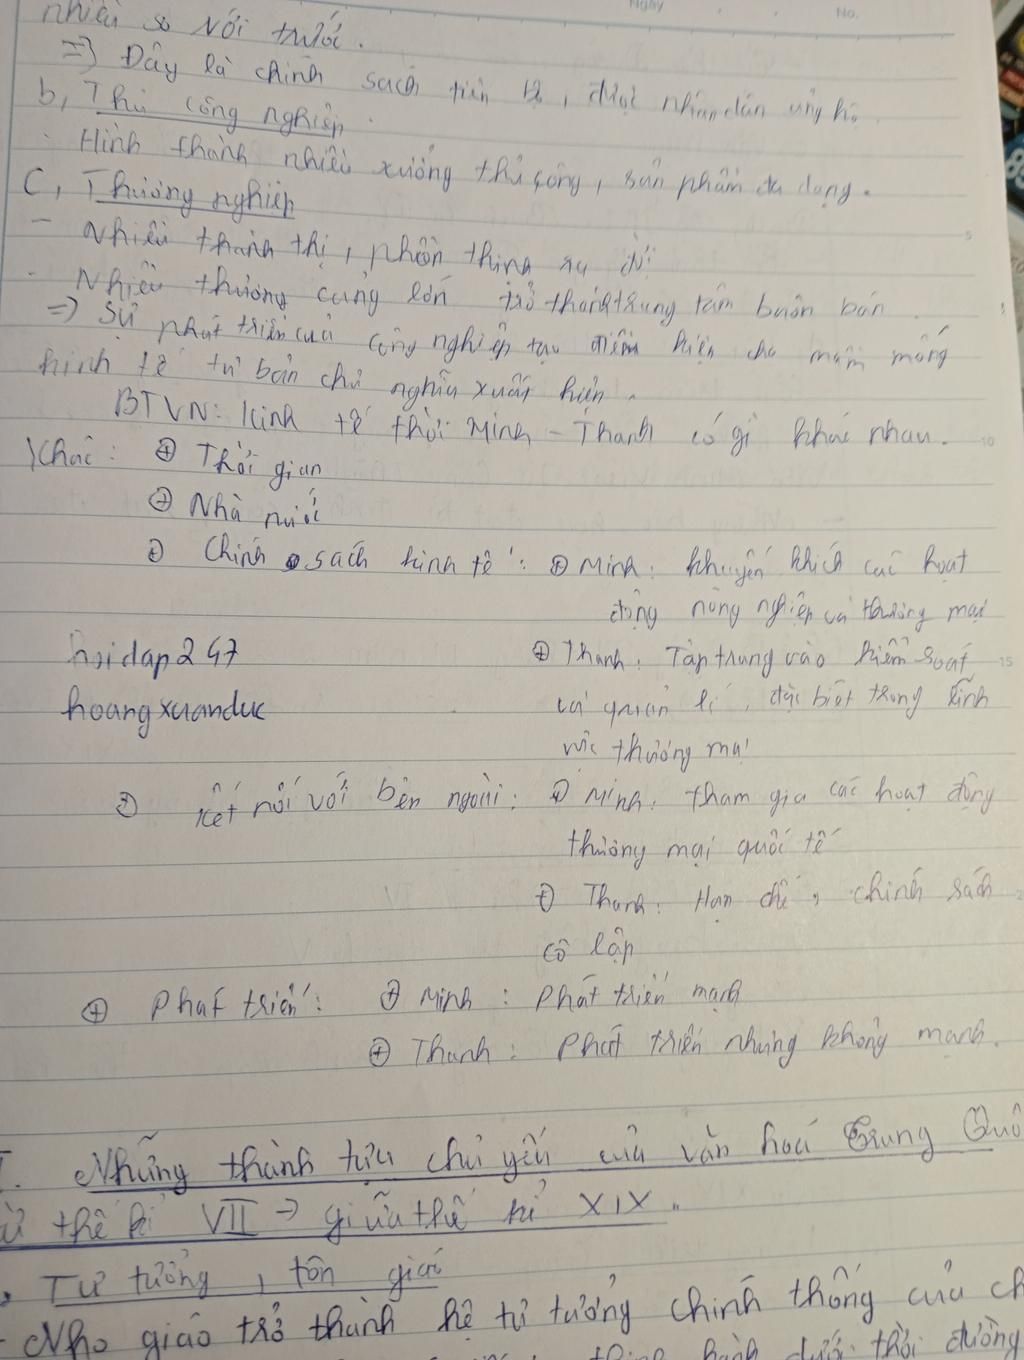 nhiều so với trước.
=> Đây là chính sách tiến bộ, được nhân dân ủng hộ
b, Thủ công nghiệp
- Hình thành nhiều xưởng thủ công, sản phẩm đa dạng.
C, Thương nghiệp
- Nhiều thành thị, phồn thịnh ra đời
- Nhiều thương cảng lớn trở thành trung tâm buôn bán.
=> Sự phát triển của công nghiệp tạo điều kiện cho mầm mống
kinh tế tư bản chủ nghĩa xuất hiện.
BTVN: Kinh tế thời Minh - Thanh có gì khác nhau.
Khác: + Thời gian
+ Nhà nước
+ Chính sách kinh tế: + Minh: khuyến khích các hoạt
động nông nghiệp và thương mại
hoidap247
+ Thanh: Tập trung vào kiểm soát
hoangxuanduc
và quản lí, đặc biệt trong lĩnh
vực thương mại
+ Kết nối với bên ngoài: + Minh: tham gia các hoạt động
thương mại quốc tế
+ Thanh: Hạn chế, chính sách
cô lập
+ Phát triển: + Minh: phát triển mạnh
+ Thanh: phát triển nhưng không mạnh.
I. Những thành tựu chủ yếu của văn hoá Trung Quố
ừ thế kỉ VII -> giữa thế kỉ XIX.
Tư tưởng, tôn giáo
- Nho giáo trở thành hệ tư tưởng chính thống của ch
thịnh hành dưới thời đường